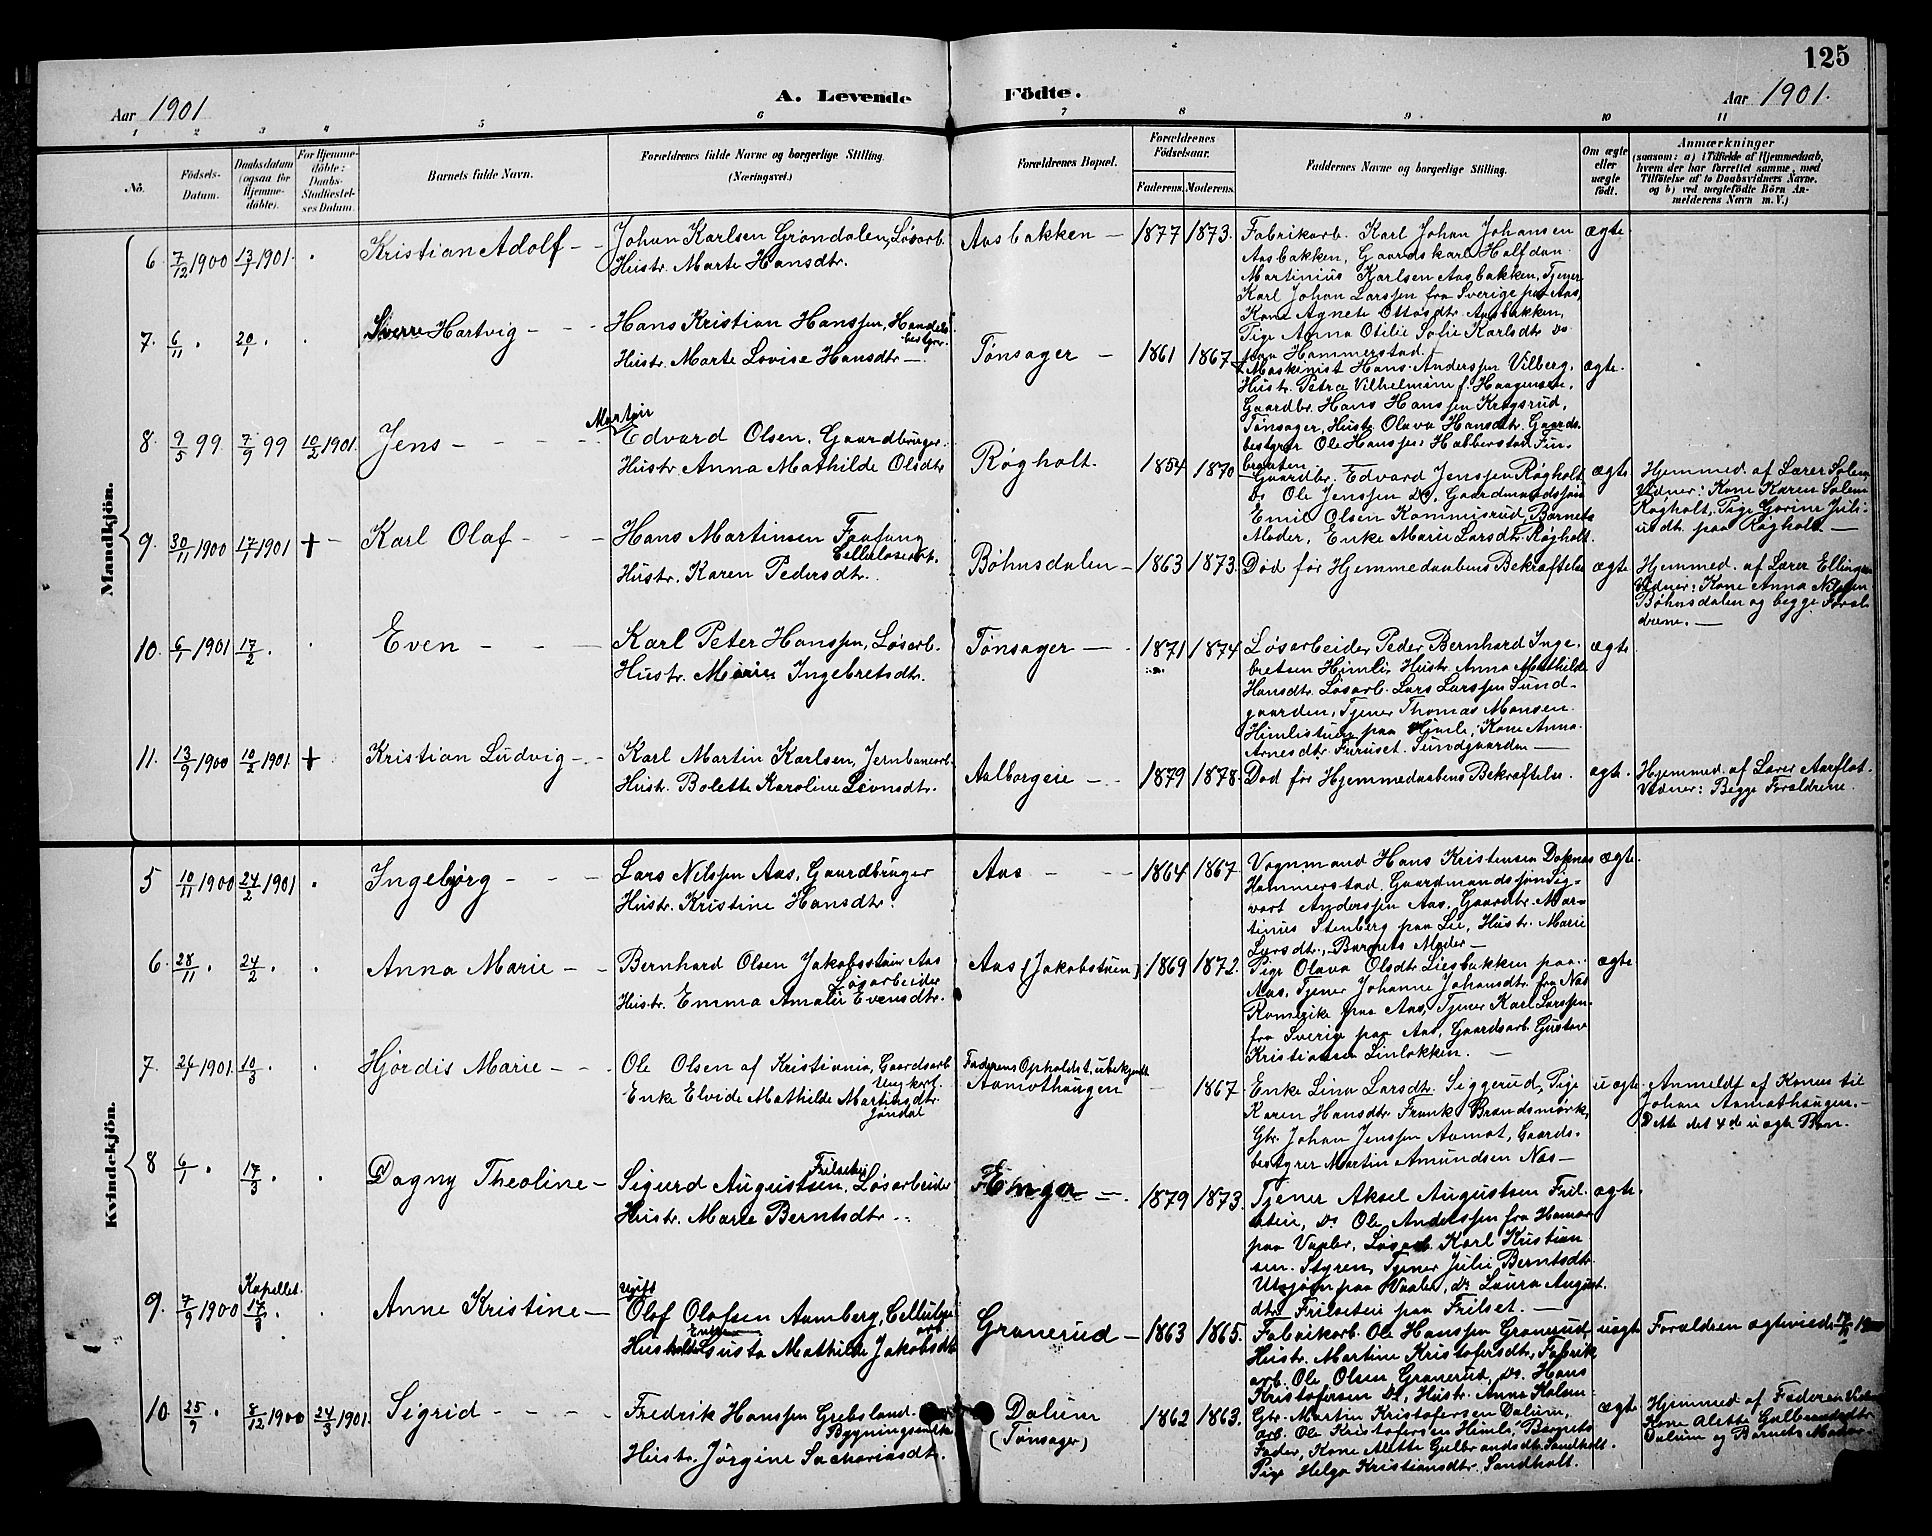 125
Aar 1901
A. Levende
Födte.
Aar 1901.
1 2 3 4 5 6 7 8 9 10 11
No.
Födsels-
Datum.
Daabsdatum
(ogsaa for
Hjemme-
döbte).
For Hjemme-
döbte:
Daabs-
Stadfæstel-
ses Datum.
Barnets fulde Navn.
Forældrenes fulde Navne og borgerlige Stilling.
(Næringsvei.)
Forældrenes Bopæl.
Forældrenes
Födselsaar.
Faderens. Moderens.
Faddernes Navne og borgerlige Stilling.
Om ægte
eller
uægte
födt.
Anmærkninger
(saasom: a) i Tilfælde af Hjemmedaab,
hvem der har forrettet samme, med
Tilföielse af to Daabsvidners Navne,
og b) ved uægtefödte Börn An-
melderens Navn m. V.)
Mandkjön.
6 7/12 1900 13/1 1901. Kristian Adolf
Johan Karlsen Grøndalen, Løsarb.
Hustr. Marte Hansdtr.
Aasbakken 1877 1873.
Fabrikarb. Karl Johan Johansen
Aasbakken, Gaardskarl Halfdan
Martinius Karlsen Aasbakken, Tjener
Karl Johan Larssen fra Sverige paa Aas,
Kone Agnete Ottosdtr. Aasbakken,
Pige Anna Otilie Sofie Karlsdtr. Do
paa Hammerstad.
ægte
7. 6/11 20/1 Sverre Hartvig
Hans Kristian Hanssen, Handels-
bestyrer.
Hustr. Marte Lovise Hansdtr
Tønsager 1861 1867
Maskinist Hans Anderssen Vilberg,
Hustr. Petra Vilhelmine f. Haagensen,
Gaardbr. Hans Hanssen Kragsrud,
Tønsager, Hustr. Olava Hansdtr. Gaards-
bestyrer Ole Hanssen Habberstad Fin-
braaten
ægte.
8. 9/5 99 7/9 99 10/2 1901. Jens
Martin
Edvard Olsen, Gaardbruger.
Hustr. Anna Mathilde Olsdtr
Røgholt. 1854 1870
Gaardbr. Edvard Jenssen Røgholt
Do Ole Jenssen Do, Gaardmandssøn
Emil Olsen Kommisrud, Barnets
Moder, Enke Marie Larsdtr. Røgholt.
ægte
Hjemmed. af Lærer Solem
Vidner: Kone Karen Solem
Røgholt, Pige Gorine Juli-
usdtr. paa Røgholt.
9. 30/11 1900 17/1 1901 + Karl Olaf
Hans Martinsen Faafang
Cellulosearb.
Hustr. Karen Pedersdtr.
Bøhnsdalen 1863 1873.
Død før Hjemmedaabens Bekræftelse
ægte
Hjemmed. af Lærer Ellingsen
Vidner: Kone Anna Nilssen
Bøhnsdalen og begge Foræl-
drene.
10. 6/1 1901 17/2 Even
Karl Peter Hanssen, Løsarb.
Hustr. Marie Ingebretsdtr.
Tønsager 1871 1874
Løsarbeider Peder Bernhard Inge-
bretsen Himli, Hustr. Anna Mathilde
Hansdtr. Løsarb. Lars Larssen Sund-
gaarden, Tjener Thomas Monsen
Himlistuen paa Himle, Kone Anna
Arnesdtr. Furuset. Sundgaarden
ægte
11. 13/9 1900 10/2 1901. + Kristian Ludvig
Karl Martin Karlsen, Jernbanearb.
Hustr. Bolette Karoline Livnsdtr.
Aalborgeie 1879 1878.
Død før Hjemmedaabens Bekræftelse.
ægte.
Hjemmed. af Lærer Aarflot.
Vidner: Begge Forældrene.
Kvindekjön.
5 10/11 1900 24/2 1901 Ingebjørg
Lars Nilssen Aas, Gaardbruger
Hustr. Kristine Hansdtr.
Aas 1864 1867
Vognmand Hans Kristensen Doknæs
Hammerstad, Gaardmandssøn Sig-
vart Anderssen Aas. Gaardbr. Mar-
tinius Stenberg paa Lie, Hustr. Marie
Larsdtr., Barnets Moder
ægte.
6. 28/11 24/2 Anna Marie
Bernhard Olsen Jakobsstuen Aas
Løsarbeider
Hustr. Emma Amalie Evensdtr.
Aas (Jakobstuen) 1869 1872.
Pige Olava Olsdtr. Liesbakken paa
Aas, Tjener Johanne Johansdtr. fra Næs
Romerike paa Aas, Tjener Karl Larssen
fra Sverige paa Aas, Gaardsarb. Gustav
Kristiansen Linløkken.
ægte
7. 24/1 1901. 10/3 Hjørdis Marie
Ole Olsen af Kristiania, Gaardsarb
Ungkarl.
Enke Elvide Mathilde Martinsdtr.
Jøndal
Faderens Opholdst. ubekjendt
Aamothaugen 1867
Enke Lina Larsdtr. Siggerud, Pige
Karen Hansdtr. Frank Brandsmørk,
Gbr. Johan Jenssen Aamot, Gaards-
bestyrer Martin Amundsen Næs
uægte.
Anmeldt af Konen til
Johan Aamothaugen.
Dette det 4de uægte Barn.
8 6/1 17/3 Dagny Theoline
Frilseteie
Sigurd Augustsen, Løsarbeider
Hustr. Marie Berntsdtr.
Enga 1879 1873.
Tjener Aksel Augustsen Fril-
seteie, Do Ole Anderssen fra Hamar
paa Vaaler, Løsarb. Karl Kristian
sen Styren, Tjener Julie Berntsdtr.
Utsjøen paa Vaaler, do Laura August
dtr. Frilseteie paa Frilset.
ægte
9. 7/9 1900 Kapellet. 17/3 Anne Kristine
Ugift
Olaf Olafsen Aamberg, Cellulose
arb.
Enke
Husholdr. Gusta Mathilde Jakobsdtr
Granerud 1863 1865.
Fabrikarb. Ole Hanssen Granerud,
Hustr. Martine Kristofersdtr, Fabrik
arb. Ole Olsen Granerud, Do. Hans
Kristofersen Do, Hustr. Anna Kalsen
uægte
Forældren ægteviede
10 25/9 8/12 1900 24/3 1901. Sigrid
Fredrik Hanssen Grebsland.
Bygningssnedker
Hustr. Jørgine Sachariasdtr.
Dalum
(Tønsager) 1862 1863.
Gbr. Martin Kristofersen Dalum,
arb. Ole Kristofersen Himle, Barnets
Fader, Kone Alette Gulbrandsdtr. Sandholt.
Pige Helga Kristiansdtr. Sandholt.
ægte
Hjemmed. af Faderen Vidner
Kone Alette Gulbrandsdtr
Dalum og Barnets Moder.